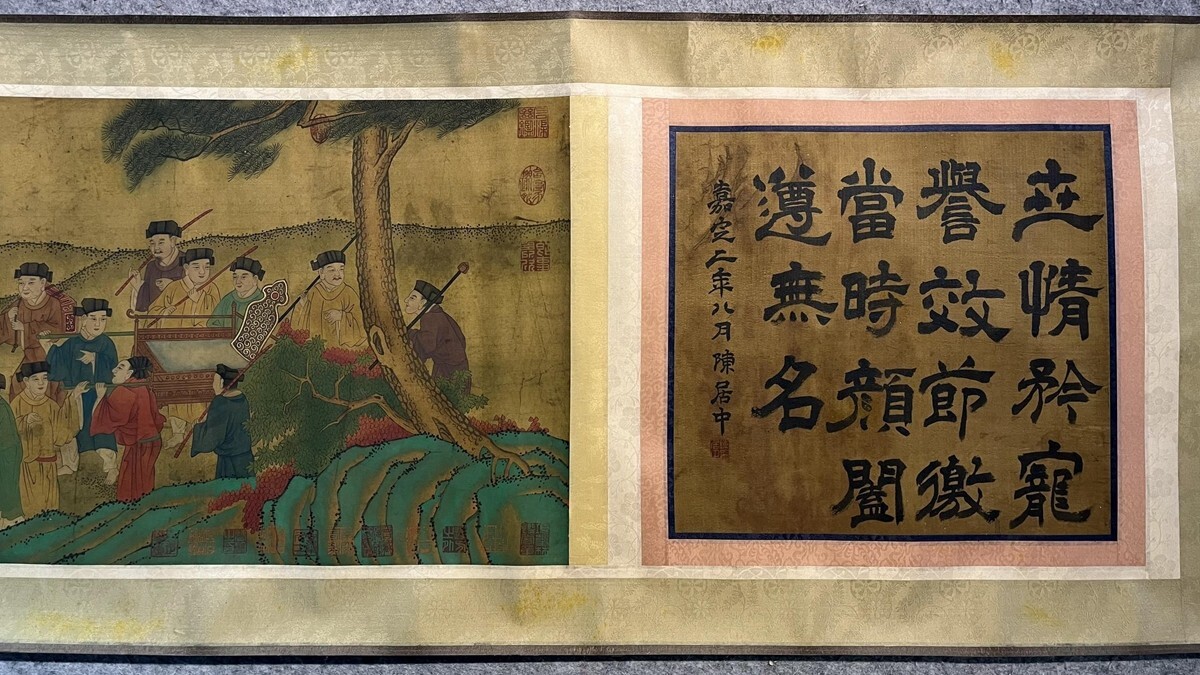 世情矜寵
譽效節徼
當時顏闔
遵無名
嘉定二年八月陳居中